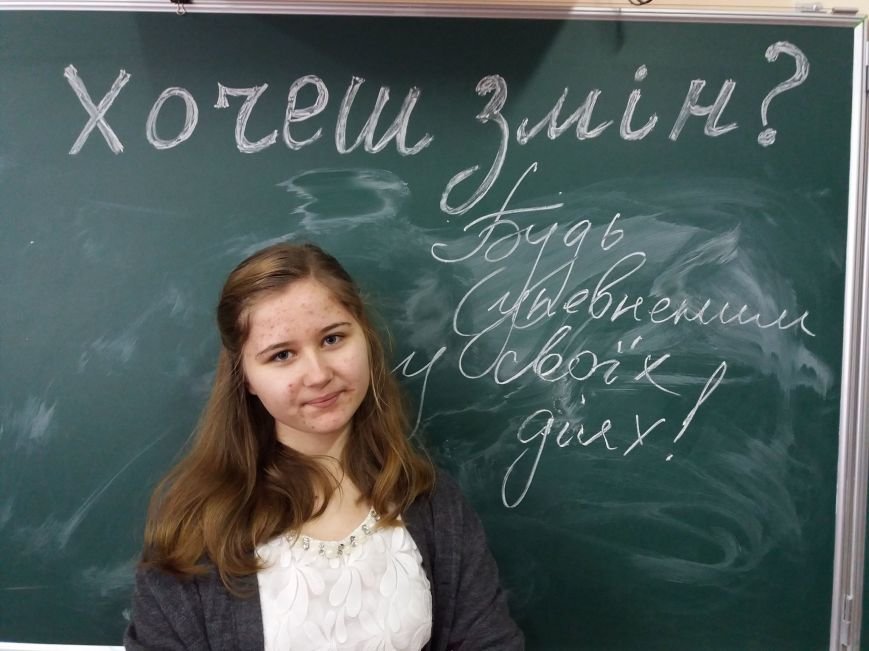 Хочеш змін?
Будь
упевненим
у своїх
діях!